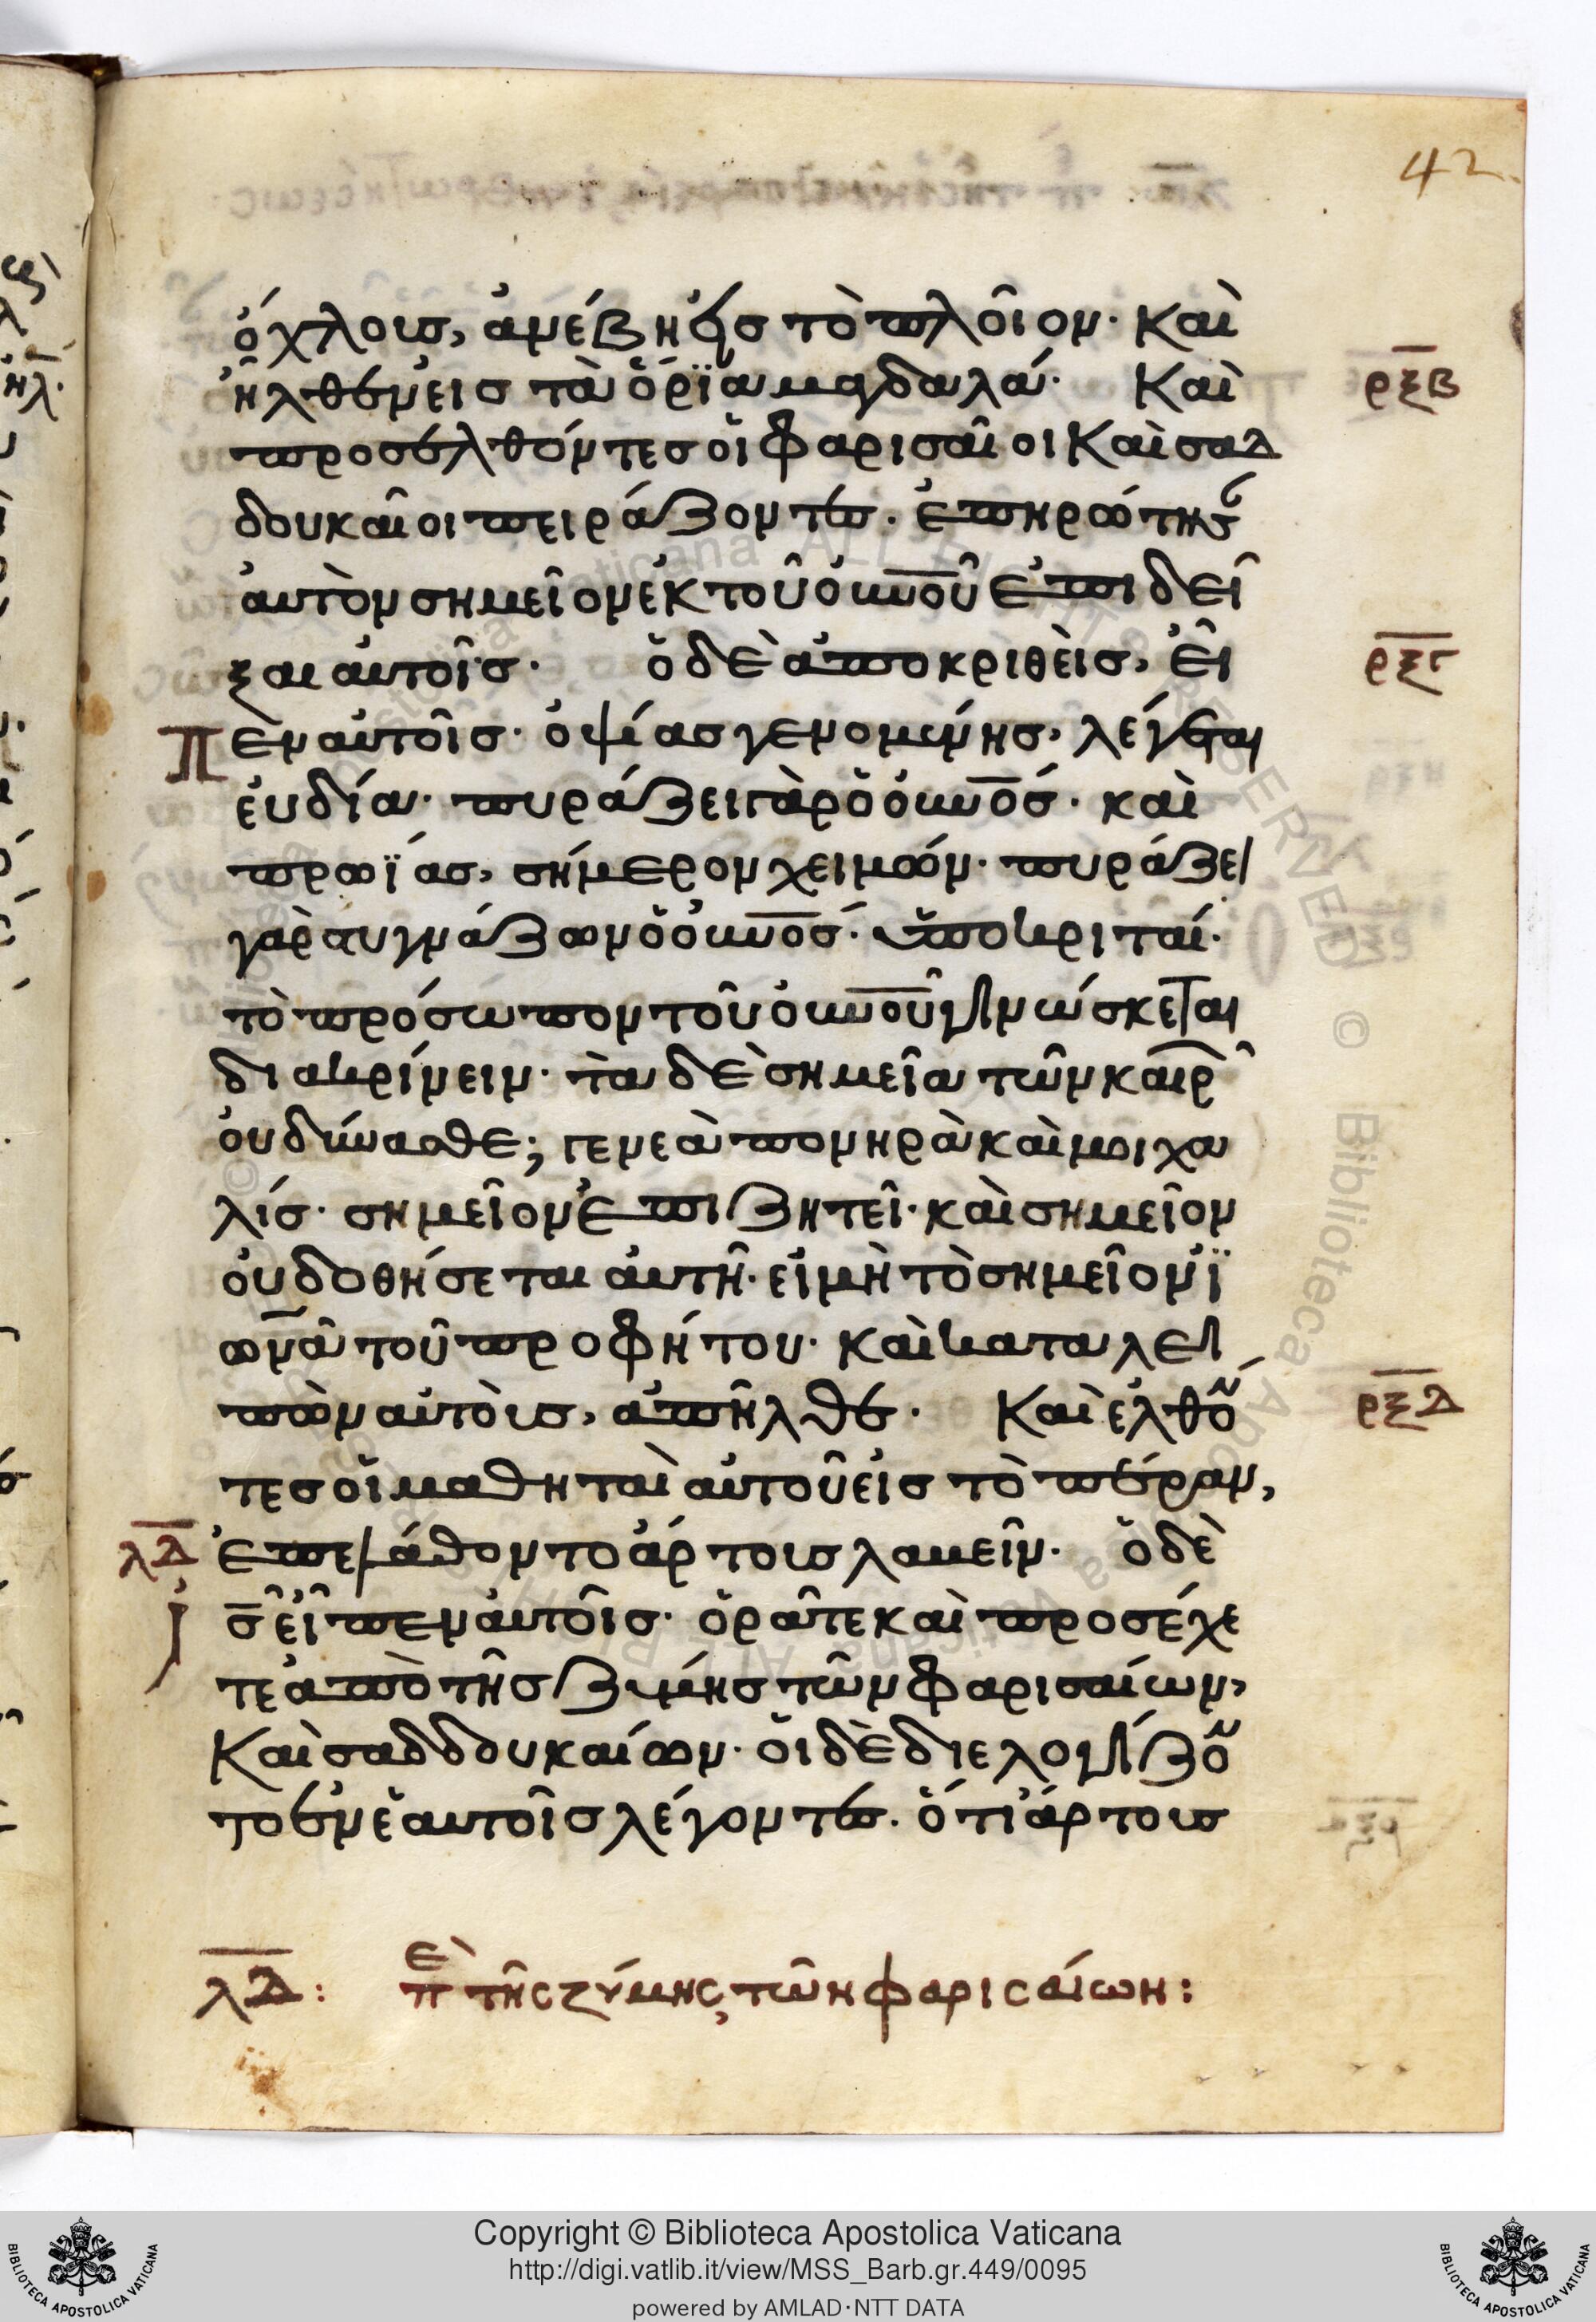 42
ὄχλους, ἀνέβη εἰς τὸ πλοῖον· Καὶ
ἦλθεν εἰς τὰ ὅρϊα μαγδαλά· Καὶ
ρξβ
προσελθόντες οἱ φαρισαῖοι Καὶ σαδ
δουκαῖοι πειράζοντες· ἐπηρώτησ
αὐτὸν σημεῖον ἐκ τοῦ οὐνοῦ ἐπιδεῖ
ξαι αὐτοῖς· ὁ δὲ ἀποκριθεὶς, εἶ
ρξγ
Πεν αὐτοῖς· ὀψίας γενομένης, λέγεται
εὐδία· πυράζει γὰρ ὁ οὐνός· καὶ
πρωϊας, σήμερον χειμών· πυράζει
γὰρ στυγνάζων ὁ οὐνός· ὑποκριταί·
τὸ πρόσωπον τοῦ οὐνοῦ γινώσκεται
διακρίνειν· τὰ δὲ σημεῖα τῶν καιρ
οὐ δύνασθε; γενεὰ πονηρὰ καὶ μοιχα
λίς· σημεῖον ἐπιζητεῖ· καὶ σημεῖον
οὐ δοθήσεται αὐτῆ· εἰ μὴ τὸ σημεῖον ϊ
ωνᾶ τοῦ προφήτου· καὶ καταλει
πὼν αὐτοὺς, ἀπῆλθε· Καὶ ἐλθό
ρξδ
τες οἱ μαθηταὶ αὐτοῦ εἰς τὸ πέραν,
λδ ἐπελάθοντο ἄρτους λαβεῖν· ὁ δὲ
ς εἶπεν αὐτοῖς· ὁρᾶτε καὶ προσέχε
τε ἀπὸ τῆς ζύμης τῶν φαρισαίων,
Καὶ σαδδουκαίων· οἱ δὲ διελογίζο
το ἐν ἑαυτοῖς λέγοντες· ὅτι ἄρτους
λδ: πε τῆς ζύμης τῶν φαρισαίων:
Copyright © Biblioteca Apostolica Vaticana
http://digi.vatlib.it/view/MSS_Barb.gr.449/0095
powered by AMLAD·NTT DATA
BIBLIOTECA APOSTOLICA VATICANA
BIBLIOTECA APOSTOLICA VATICANA